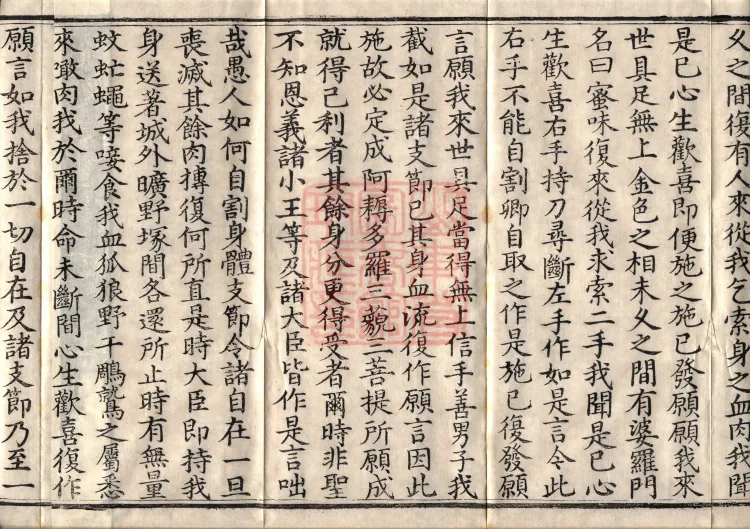 久之間復有人來從我乞索身之血肉我聞
是已心生歡喜即便施之施已發願願我來
世具足無上金色之相未久之間有婆羅門
名曰蜜味復來從我求索二手我聞是已心
生歡喜右手持刀尋斷左手作如是言今此
右手不能自割卿自取之作是施已復發願
言願我來世具足當得無上信手善男子我
截如是諸支節已其身血流復作願言因此
施故必定成阿耨多羅三藐三菩提所願成
就得己利者其餘身分更得受者爾時非聖
不知恩義諸小王等及諸大臣皆作是言咄
哉愚人如何自割身體支節令諸自在一旦
喪滅其餘肉摶復何所直是時大臣即持我
身送著城外曠野塚間各還所止時有無量
蚊虻蠅等唼食我血狐狼野干鵰鷲之屬悉
來噉肉我於爾時命未斷間心生歡喜復作
願言如我捨於一切自在及諸支節乃至一